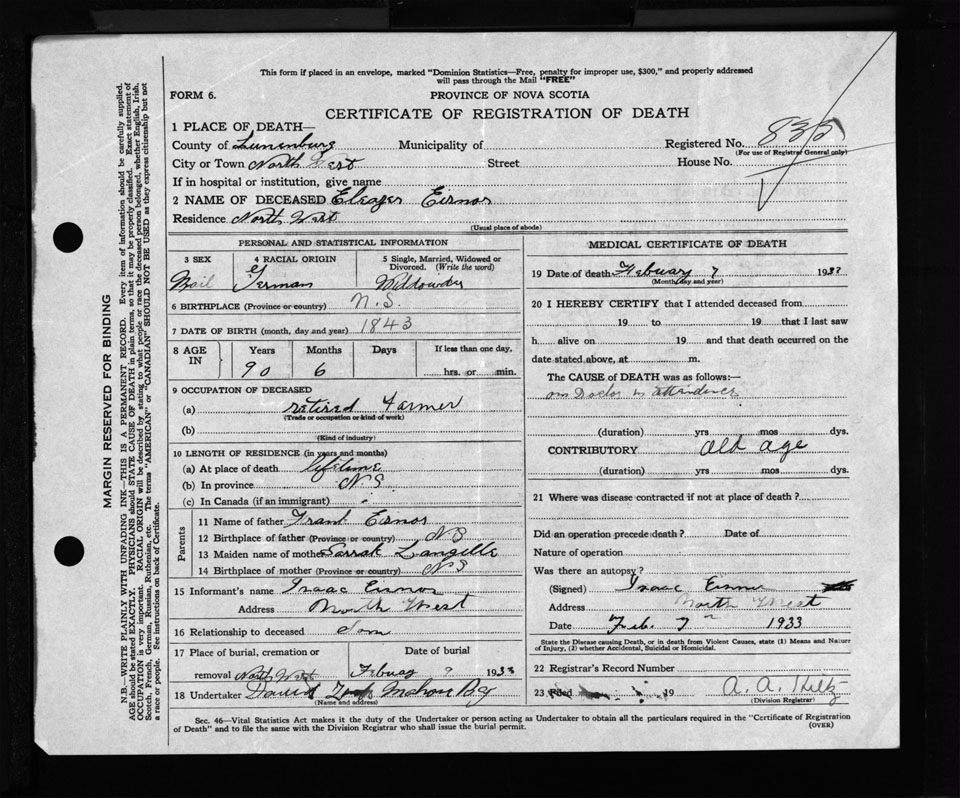 This form if placed in an envelope, marked "Dominion Statistics—Free, penalty for improper use, $300," and properly addressed
will pass through the Mail "FREE"
FORM 6.
PROVINCE OF NOVA SCOTIA
CERTIFICATE OF REGISTRATION OF DEATH
1 PLACE OF DEATH—
County of Lunenburg Municipality of Registered No.
(For use of Registrar General only)
City or Town North West Street House No.
If in hospital or institution, give name
2 NAME OF DECEASED Eleazer Eisnor
Residence North West
(Usual place of abode)
PERSONAL AND STATISTICAL INFORMATION
3 SEX 4 RACIAL ORIGIN 5 Single, Married, Widowed or
Divorced. (Write the word)
Mail German
6 BIRTHPLACE (Province or country) N.S.
7 DATE OF BIRTH (month, day and year) 1843
8 AGE IN Years Months Days If less than one day,
90 6 hrs. or min.
9 OCCUPATION OF DECEASED
(a) retired Farmer
(Trade or occupation or kind of work)
(b)
(Kind of industry)
10 LENGTH OF RESIDENCE (in years and months)
(a) At place of death lifetime
(b) In province N S
(c) In Canada (if an immigrant)
Parents
11 Name of father Frank Eisnor
12 Birthplace of father (Province or country) N S
13 Maiden name of mother Sarrah Langille
14 Birthplace of mother (Province or country) N S
15 Informant's name Isaac Eisnor
Address North West
16 Relationship to deceased Son
17 Place of burial, cremation or Date of burial
removal North West Febuary 9 1933
18 Undertaker Mahon Bay
(Name and address)
MEDICAL CERTIFICATE OF DEATH
19 Date of death Febuary 7 1933
(Month, day and year)
20 I HEREBY CERTIFY that I attended deceased from
19 to 19 that I last saw
h alive on 19 and that death occurred on the
date stated above, at m.
The CAUSE of DEATH was as follows:—
Doctor in attendence
(duration) yrs mos dys.
CONTRIBUTORY old age
(duration) yrs mos dys.
21 Where was disease contracted if not at place of death?
Did an operation precede death? Date of
Nature of operation
Was there an autopsy?
(Signed) Isaac Eisnor
Address North West
Date Feb. 7 1933
State the Disease causing Death, or in death from Violent Causes, state (1) Means and Nature
of Injury, (2) whether Accidental, Suicidal or Homicidal.
22 Registrar's Record Number
23 Filed 19 A. A. Hiltz
(Division Registrar)
Sec. 46—Vital Statistics Act makes it the duty of the Undertaker or person acting as Undertaker to obtain all the particulars required in the "Certificate of Registration
of Death" and to file the same with the Division Registrar who shall issue the burial permit. (OVER)
MARGIN RESERVED FOR BINDING
N.B.—WRITE PLAINLY WITH UNFADING INK—THIS IS A PERMANENT RECORD. Every item of information should be carefully supplied.
AGE should be stated EXACTLY. PHYSICIANS should STATE CAUSE OF DEATH in plain terms, so that it may be properly classified. Exact statement of
OCCUPATION is very important. RACIAL ORIGIN will be described by stating to what people or race the deceased person belonged, whether English, Irish,
Scotch, French, German, Russian, Ruthenian, etc. The terms "AMERICAN" or "CANADIAN" SHOULD NOT BE USED as they express citizenship but not
a race or people. See instructions on back of Certificate.